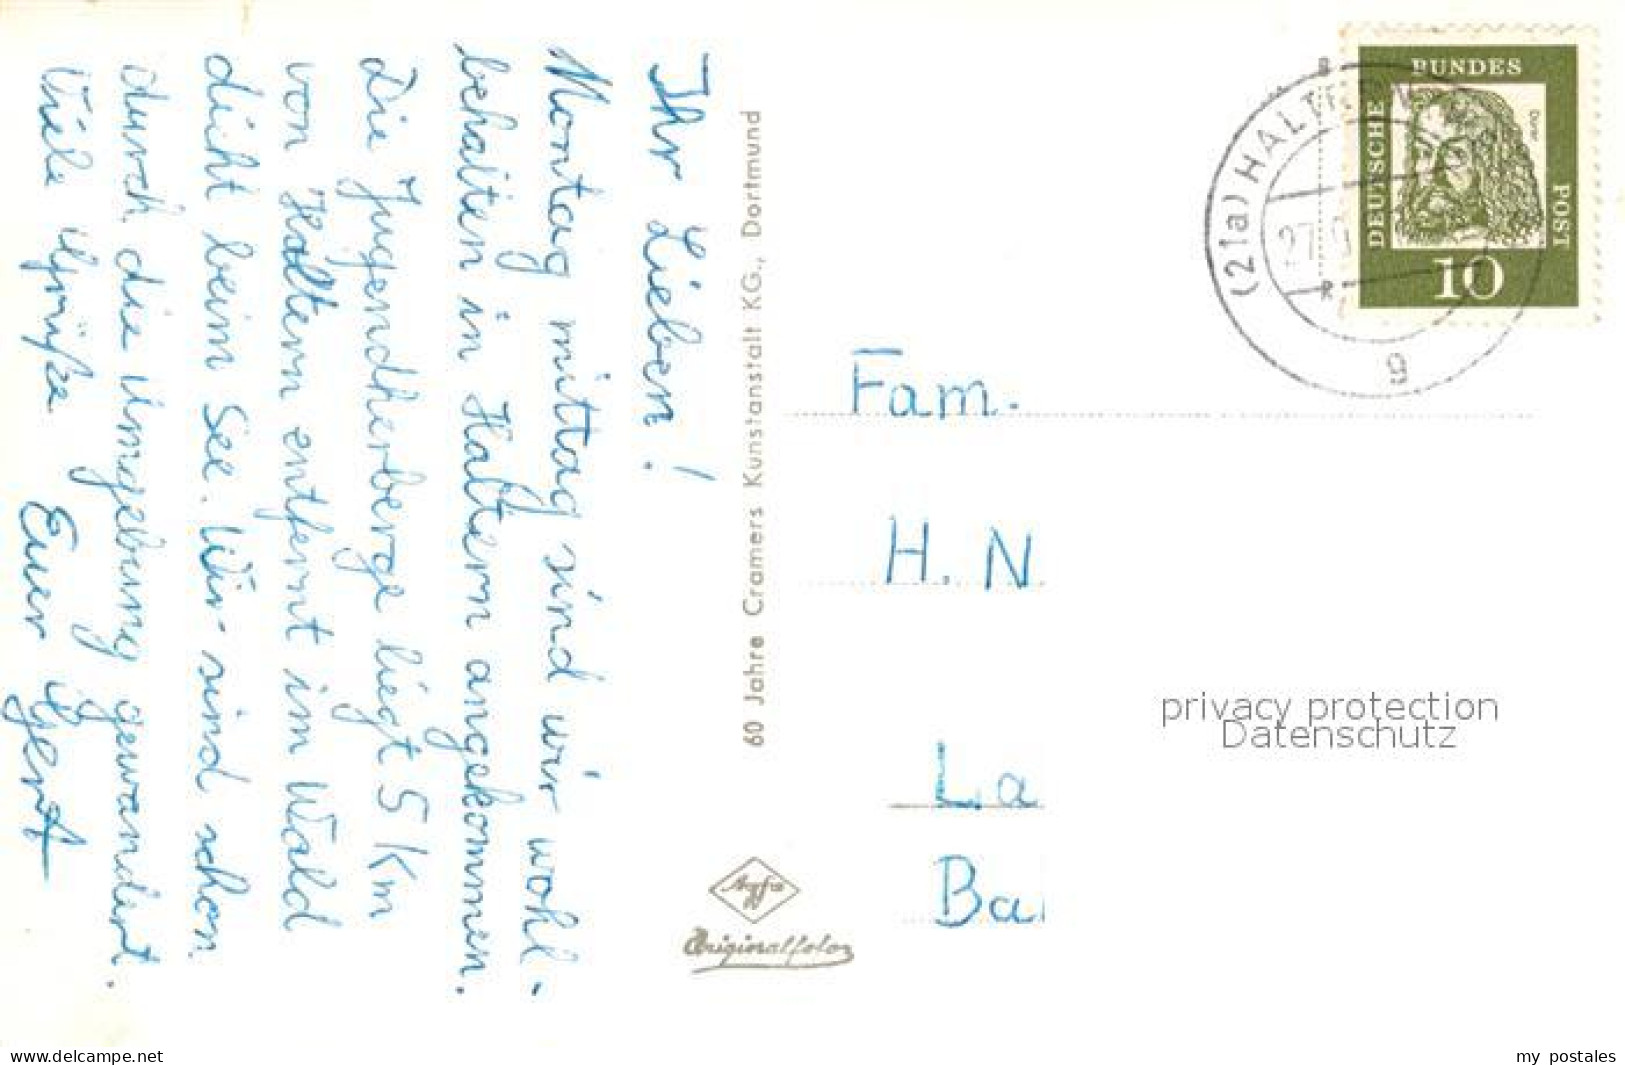 Ihr Lieben!
Montag mittag sind wir wohl-
behalten in Haltern angekommen.
Die Jugendherberge liegt 5 km
von Haltern entfernt im Wald
dicht beim See. Wir sind schon
durch die Umgebung gewandert.
Viele Grüße Euer Gert
60 Jahre Cramers Kunstanstalt KG., Dortmund
Agfa
Originalfoto
(21a) HALTERN
27
g
DEUTSCHE BUNDES POST
Dürer
10
Fam.
H. N
La
Ba
privacy protection
Datenschutz
www.delcampe.net
my_postales